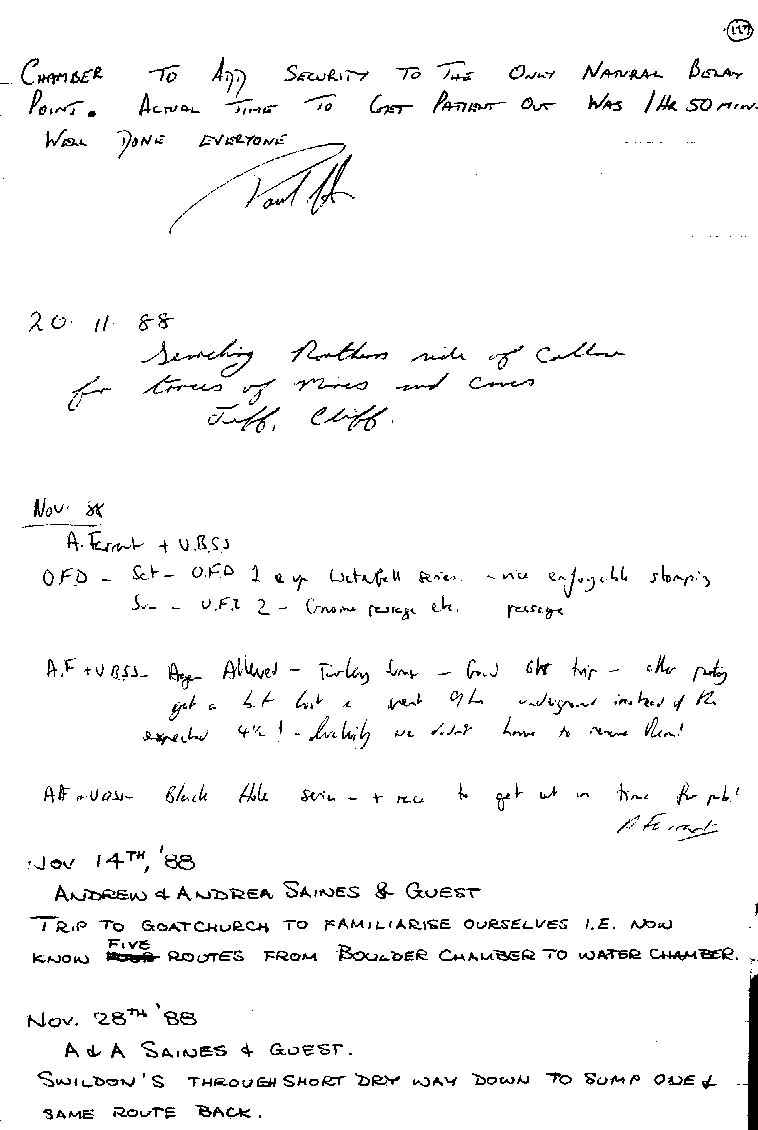 CHAMBER TO ADD SECURITY TO THE ONLY NATURAL BELAY
POINT. ACTUAL TIME TO GET PATIENT OUT WAS 1HR 50 MIN.
WELL DONE EVERYONE
Paul
20. 11. 88
Searching Northern side of
for traces of Mines and Caves
Jeff, Cliff.
Nov. 88
A. Farrant + U.B.S.S
O.F.D - Sat - O.F.D 1 & up Waterfall series. - nice enjoyable stomping
Sun - O.F.D 2 - Gnome passage etc. passage
A.F + U.B.S.S - Agen Allwed - Turkey - Good 6hr trip - other party
got a bit lost & spent 9hrs underground instead of the
expected 4½! - luckily we didn't have to rescue them!
A.F + U.B.S.S - Black Hole series - + race to get out in time for pub!
A Farrant
NOV 14TH, '88
ANDREW & ANDREA SAINES & GUEST
TRIP TO GOATCHURCH TO FAMILIARISE OURSELVES I.E. NOW
KNOW FIVE ROUTES FROM BOULDER CHAMBER TO WATER CHAMBER.
NOV. 28TH '88
A & A SAINES & GUEST.
SWILDON'S THROUGH SHORT DRY WAY DOWN TO SUMP ONE &
SAME ROUTE BACK.